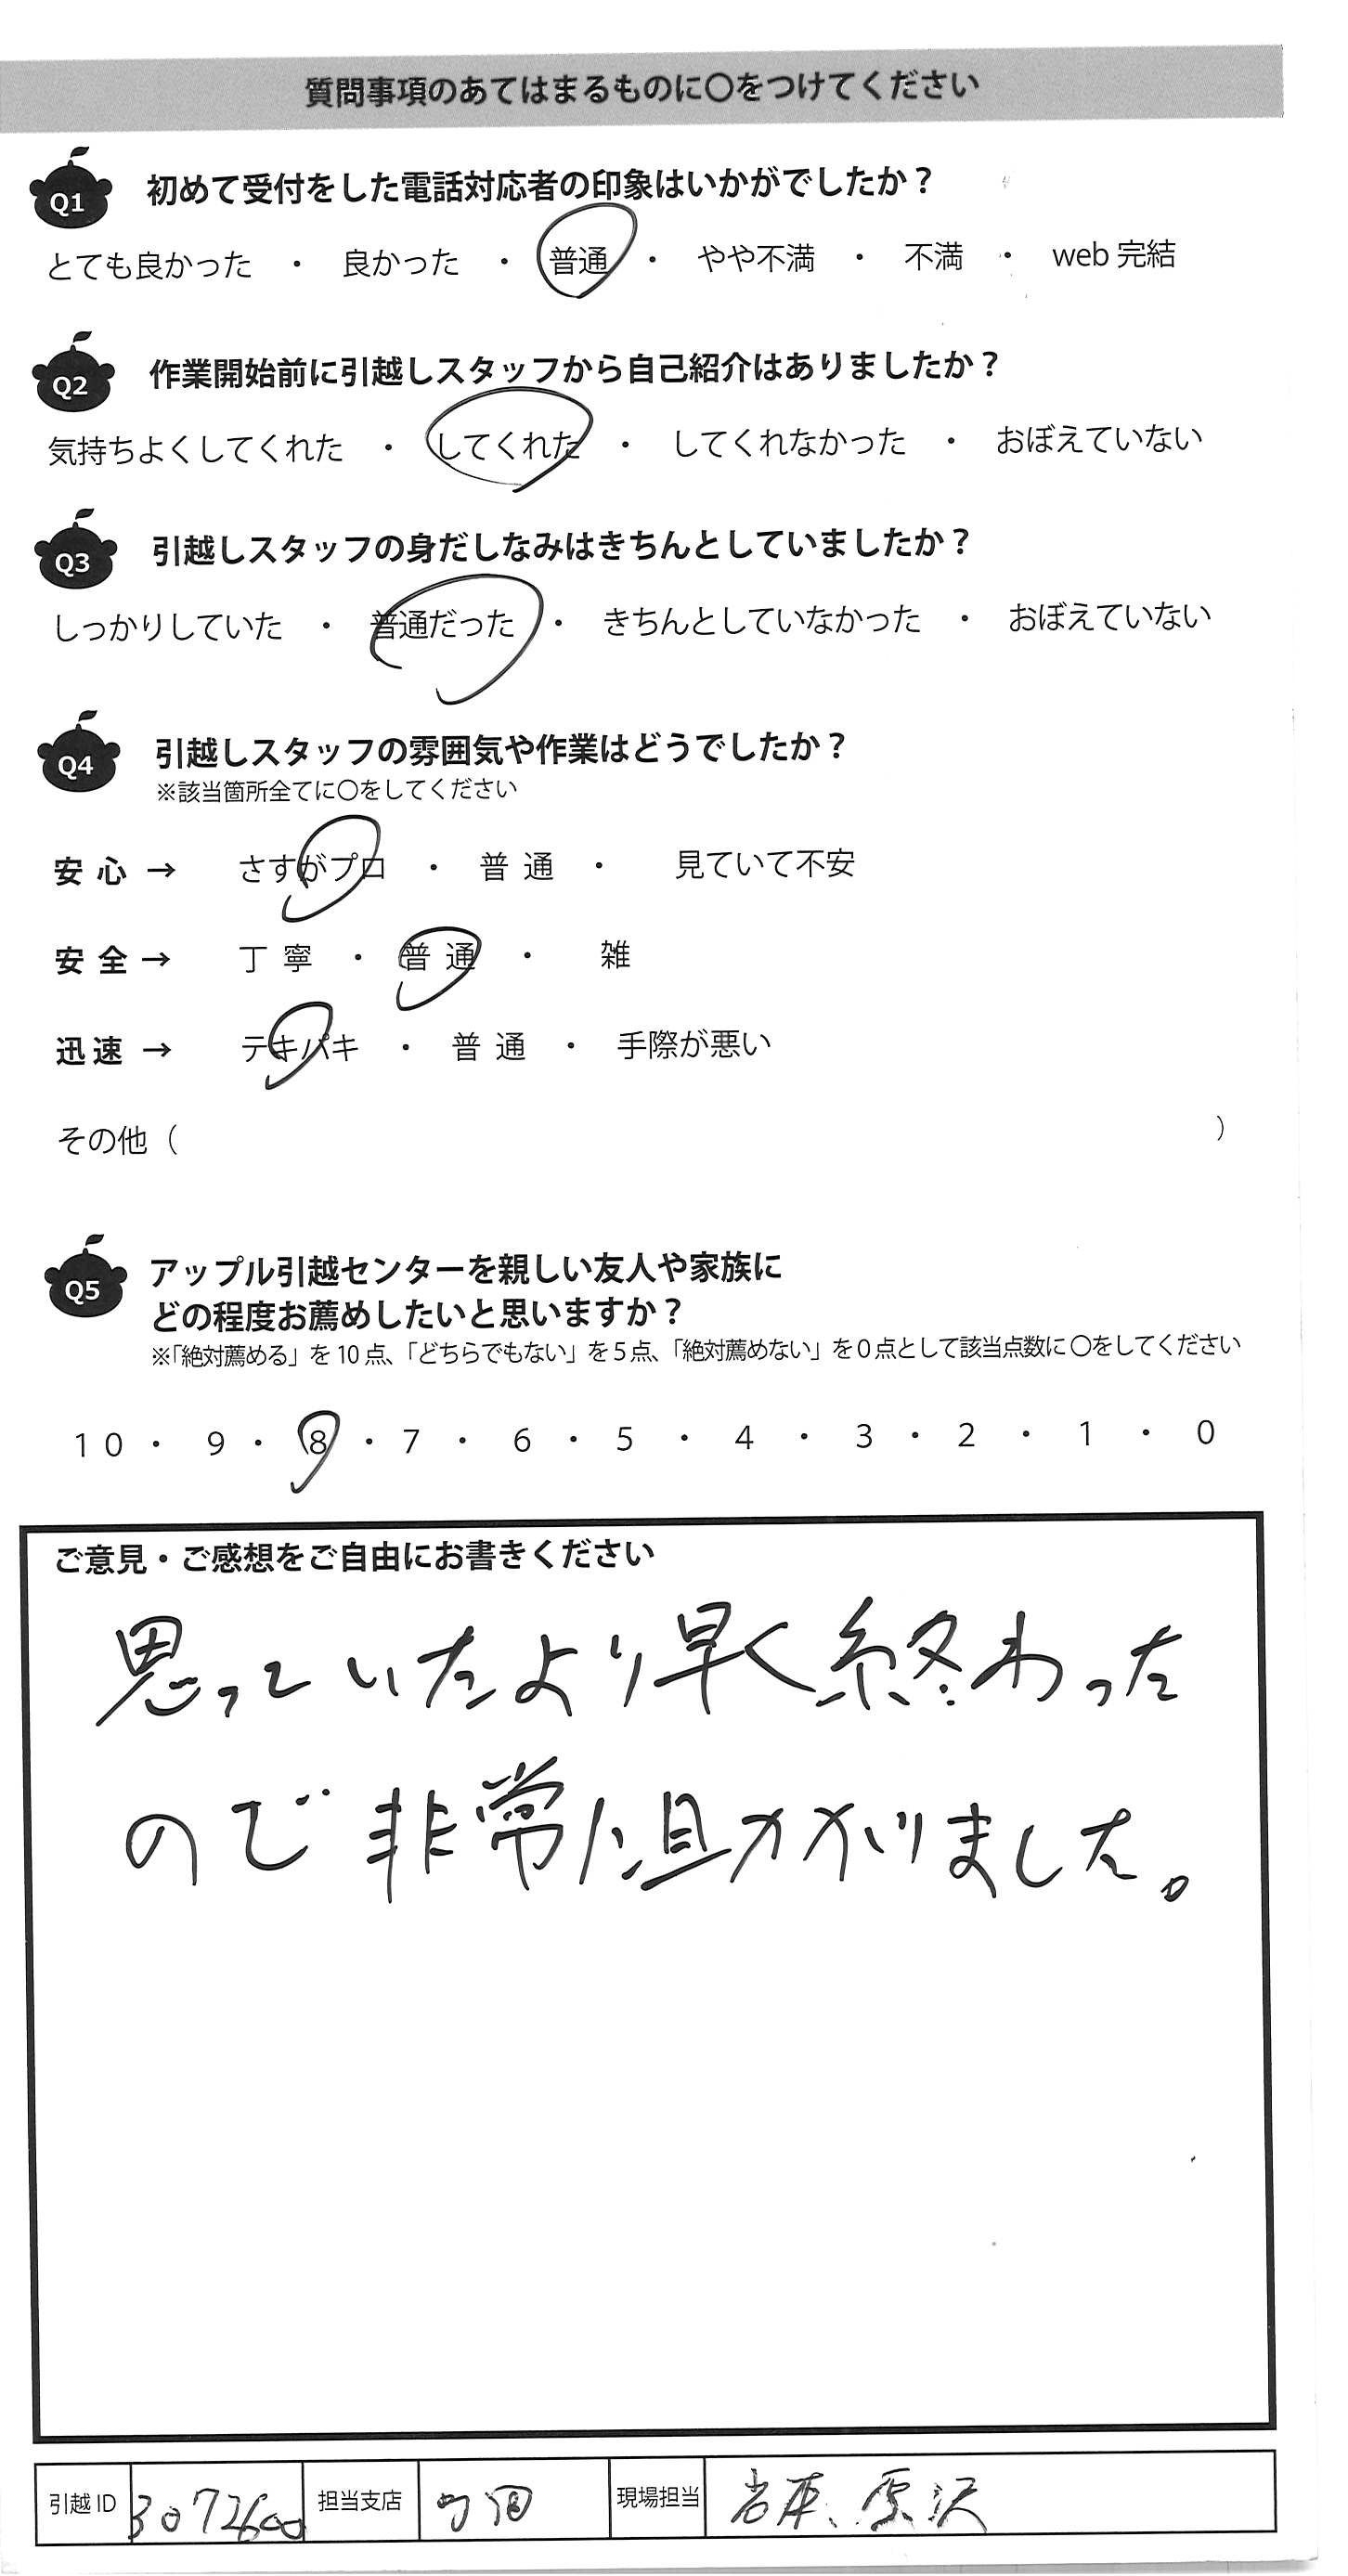 質問事項のあてはまるものに〇をつけてください
Q1 初めて受付をした電話対応者の印象はいかがでしたか？
とても良かった ・ 良かった ・ 普通 ・ やや不満 ・ 不満 ・ web 完結
Q2 作業開始前に引越しスタッフから自己紹介はありましたか？
気持ちよくしてくれた ・ してくれた ・ してくれなかった ・ おぼえていない
Q3 引越しスタッフの身だしなみはきちんとしていましたか？
しっかりしていた ・ 普通だった ・ きちんとしていなかった ・ おぼえていない
Q4 引越しスタッフの雰囲気や作業はどうでしたか？
※該当箇所全てに〇をしてください
安心 → さすがプロ ・ 普通 ・ 見ていて不安
安全 → 丁寧 ・ 普通 ・ 雑
迅速 → テキパキ ・ 普通 ・ 手際が悪い
その他（ ）
Q5 アップル引越センターを親しい友人や家族に
どの程度お薦めしたいと思いますか？
※「絶対薦める」を 10 点、「どちらでもない」を 5 点、「絶対薦めない」を 0 点として該当点数に 〇をしてください
10 ・ 9 ・ 8 ・ 7 ・ 6 ・ 5 ・ 4 ・ 3 ・ 2 ・ 1 ・ 0
ご意見・ご感想をご自由にお書きください
思っていたより早く終わった
ので非常に助かりました。
引越 ID 3072600 担当支店 現場担当 岩本、原沢